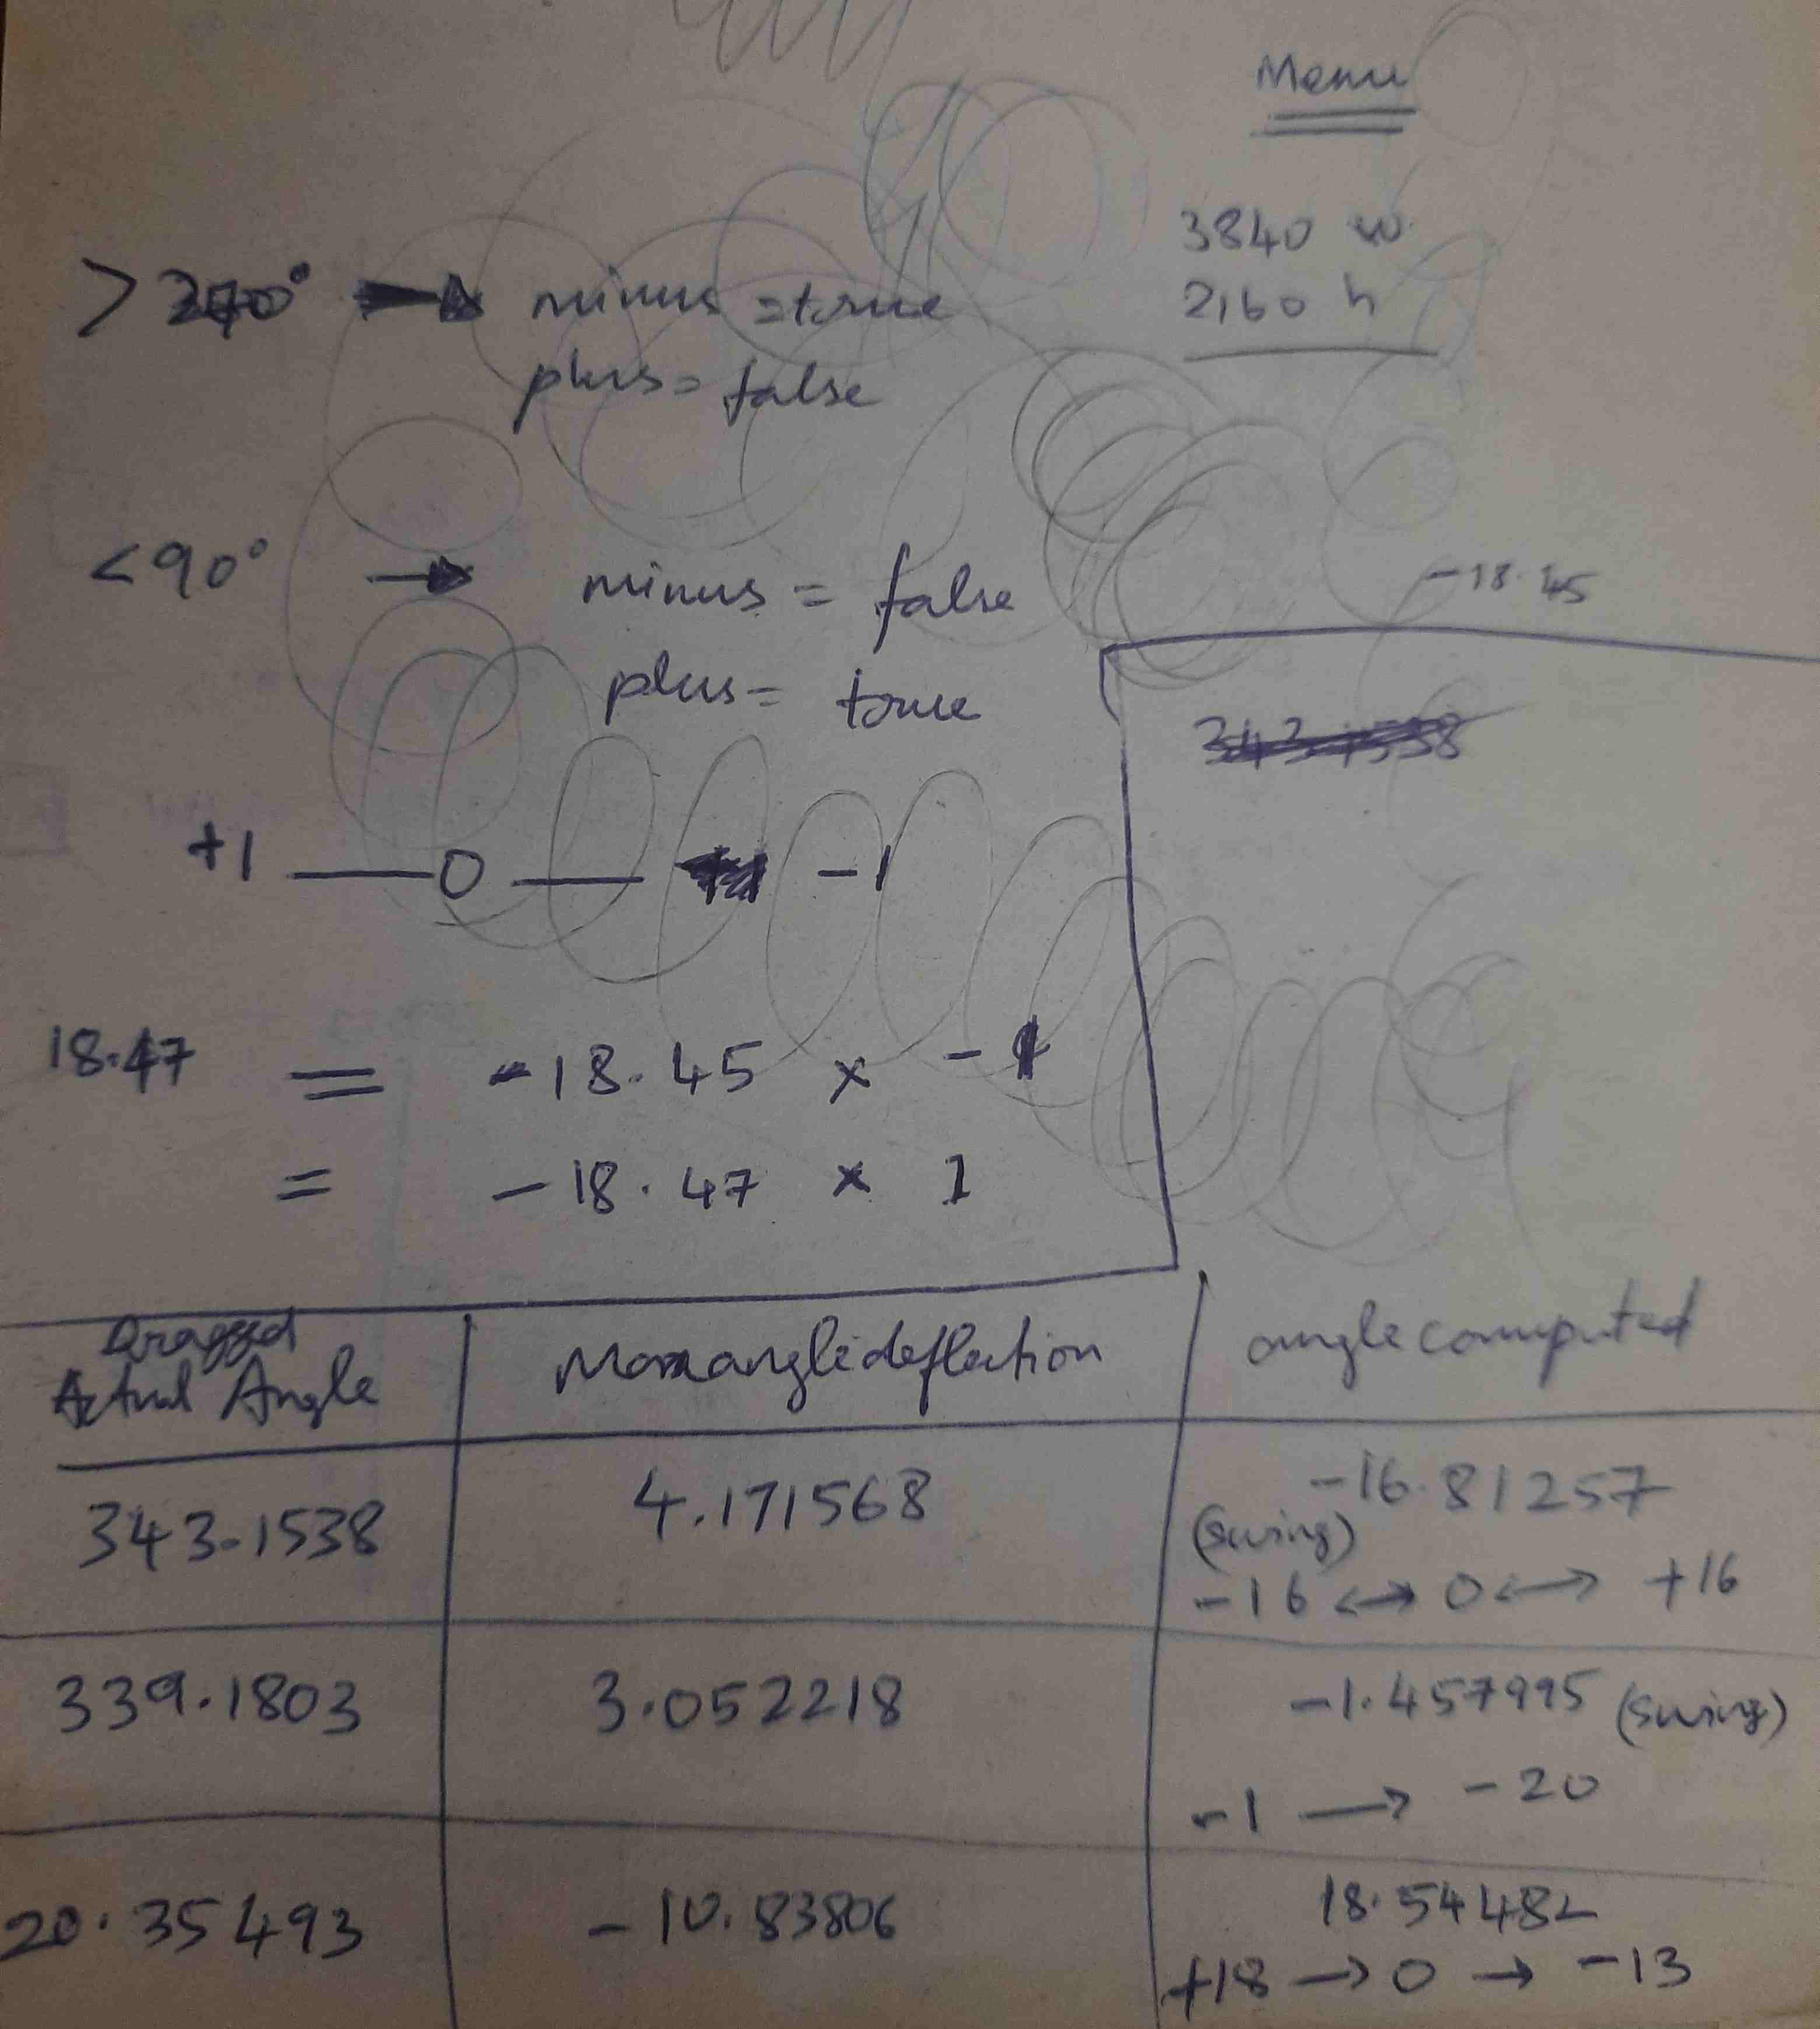 Menu
3840 w
2160 h
> 270° → minus = true
plus = false
< 90° → minus = false
plus = true
-18.45
343.1538
+1 — 0 — -1
18.47 = -18.45 × -1
= -18.47 × 1
Dragged
Actual Angle
Maxangledeflection
angle computed
343.1538
4.171568
-16.81257
(swing)
-16 ↔ 0 ↔ +16
339.1803
3.052218
-1.457995 (swing)
-1 → -20
20.35493
-10.83806
18.54482
+18 → 0 → -13